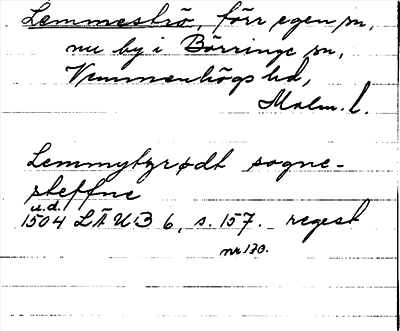 Lemmeströ, förr egen sn,
nu by i Börringe sn,
Vemmenhögs hd,
Malm. l.
Lemmytyrødt sogne-
steffne
u.d.
1504 LÄUB 6, s. 157. regest
nr 130.